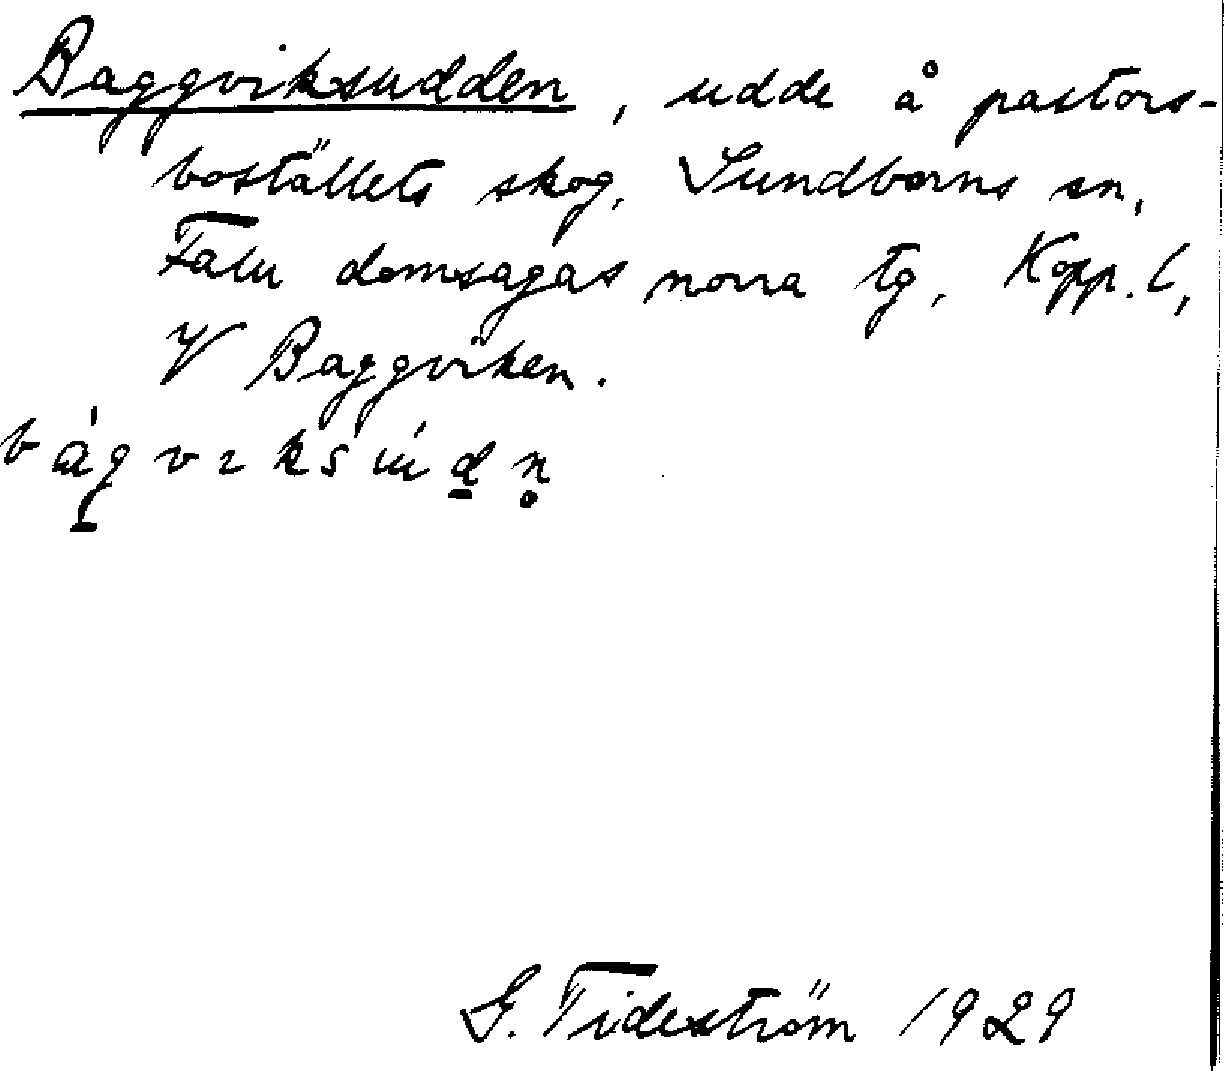 Baggviksudden, udde å pastors-
bostället skog, Sundborns sn,
Falu domsagas norra tg, Kopp. l,
V Baggviken.
bág̠vɪksúd̠n̥
G. Tideström 1929